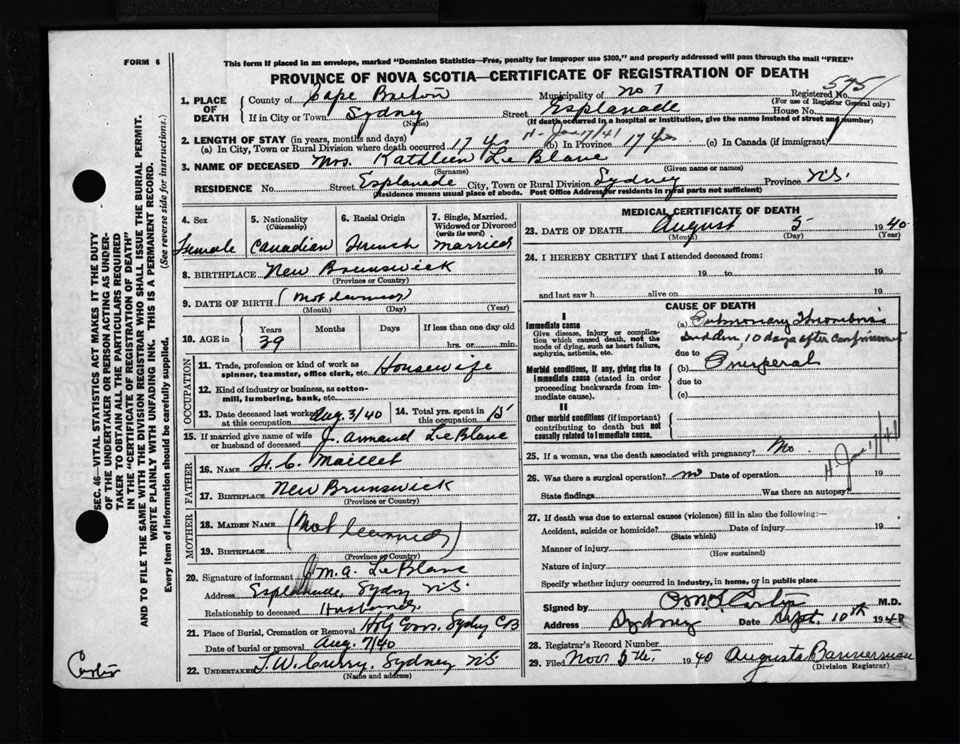 FORM 6
This form if placed in an envelope, marked "Dominion Statistics—Free, penalty for improper use $300," and properly addressed will pass through the mail "FREE"
PROVINCE OF NOVA SCOTIA—CERTIFICATE OF REGISTRATION OF DEATH
SEC. 46—VITAL STATISTICS ACT MAKES IT THE DUTY
OF THE UNDERTAKER OR PERSON ACTING AS UNDER-
TAKER TO OBTAIN ALL THE PARTICULARS REQUIRED
IN THE "CERTIFICATE OF REGISTRATION OF DEATH"
AND TO FILE THE SAME WITH THE DIVISION REGISTRAR WHO SHALL ISSUE THE BURIAL PERMIT.
WRITE PLAINLY WITH UNFADING INK. THIS IS A PERMANENT RECORD.
Every item of information should be carefully supplied. (See reverse side for instructions.)
1. PLACE OF DEATH
County of Cape Breton Municipality of No 7 Registered No.
(For use of Registrar General only)
If in City or Town Sydney Street Esplanade House No.
(Name) (If death occurred in a hospital or institution, give the name instead of street and number)
2. LENGTH OF STAY (in years, months and days)
(a) In City, Town or Rural Division where death occurred 17 yrs (b) In Province 17 yrs (c) In Canada (if immigrant)
H - Jan 17/41
3. NAME OF DECEASED Mrs. Kathleen Le Blanc
(Surname) (Given name or names)
RESIDENCE No. Street Esplanade City, Town or Rural Division Sydney Province N.S.
(Residence means usual place of abode. Post Office Address for residents in rural parts not sufficient)
4. Sex 5. Nationality (Citizenship) 6. Racial Origin 7. Single, Married, Widowed or Divorced (write the word)
Female Canadian French married
8. BIRTHPLACE New Brunswick
(Province or Country)
9. DATE OF BIRTH (not learned)
(Month) (Day) (Year)
10. AGE in Years Months Days If less than one day old
39 hrs. or min.
OCCUPATION
11. Trade, profession or kind of work as spinner, teamster, office clerk, etc. Housewife
12. Kind of industry or business, as cotton-mill, lumbering, bank, etc.
13. Date deceased last worked at this occupation Aug. 3/40 14. Total yrs. spent in this occupation 15
15. If married give name of wife or husband of deceased J. Armand Le Blanc
FATHER
16. NAME H. C. Maillet
17. BIRTHPLACE New Brunswick
(Province or Country)
MOTHER
18. MAIDEN NAME (Not learned)
19. BIRTHPLACE
(Province or Country)
20. Signature of informant J. M. A. Le Blanc
Address Esplanade, Sydney N.S.
Relationship to deceased Husband
21. Place of Burial, Cremation or Removal Holy Cross. Sydney CB
Date of burial or removal Aug. 7/40
22. UNDERTAKER T. W. Curry, Sydney NS
(Name and address)
MEDICAL CERTIFICATE OF DEATH
23. DATE OF DEATH August 5 1940
(Month) (Day) (Year)
24. I HEREBY CERTIFY that I attended deceased from:
19 to 19
and last saw h alive on 19
CAUSE OF DEATH
I
Immediate cause
Give disease, injury or complication which caused death, not the mode of dying, such as heart failure, asphyxia, asthenia, etc.
(a) Pulmonary Thrombosis
sudden, 10 days after confinement
due to
Morbid conditions, if any, giving rise to immediate cause (stated in order proceeding backwards from immediate cause).
(b) Puerperal
due to
(c)
II
Other morbid conditions (if important) contributing to death but not causally related to immediate cause.
25. If a woman, was the death associated with pregnancy? No
H. Jan 17/41
26. Was there a surgical operation? no Date of operation 19
State findings Was there an autopsy?
27. If death was due to external causes (violence) fill in also the following:—
Accident, suicide or homicide? Date of injury 19
(State which)
Manner of injury
(How sustained)
Nature of injury
Specify whether injury occurred in industry, in home, or in public place
Signed by M.D.
Address Sydney Date Sept. 10th 1940
28. Registrar's Record Number
29. Filed Nov. 5th. 1940 Augusta Bannerman
(Division Registrar)